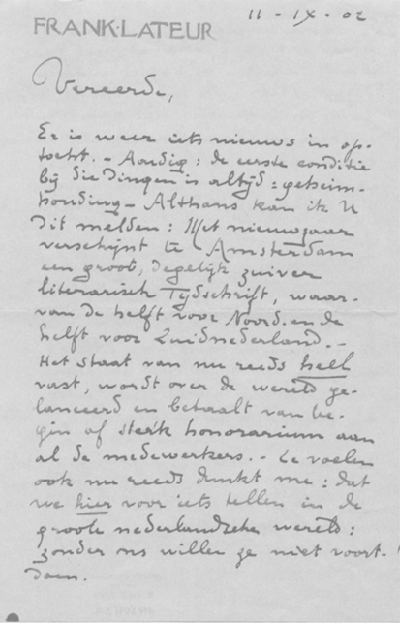 FRANK·LATEUR
11 - IX - 02
Vereerde,
Er is weer iets nieuws in op-
tocht. - Aardig: de eerste conditie
bij die dingen is altijd: geheim-
houding - Althans kan ik U
dit melden: Met nieuwjaar
verschijnt te Amsterdam
een groot, degelijk zuiver
literarisch Tijdschrift, waar-
van de helft voor Noord en de
helft voor Zuidnederland. -
Het staat van nu reeds heel
vast, wordt over de wereld ge-
lanceerd en betaalt van be-
gin af sterk honorarium aan
al de medewerkers. - Ze voelen
ook nu reeds dunkt me: dat
we hier voor iets tellen in de
groote nederlandsche wereld:
zonder ons willen ze niet voort-
doen.